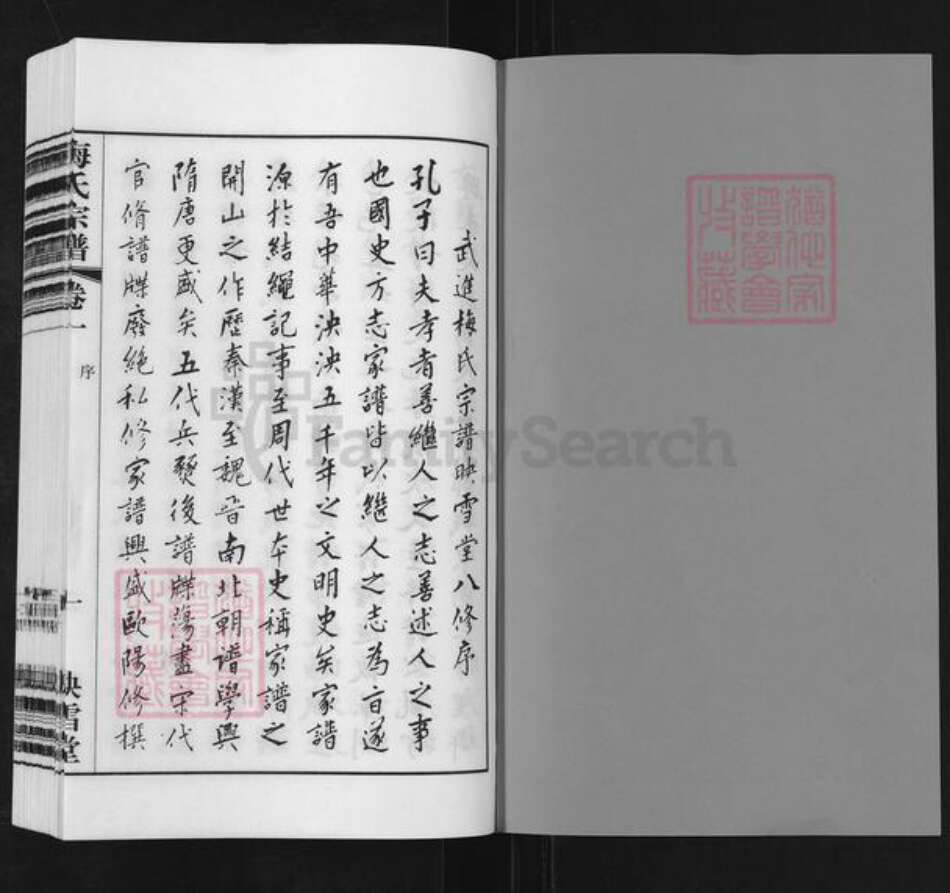 武進梅氏宗譜映雪堂八修序
孔子曰夫孝者善繼人之志善述人之事
也國史方志家譜皆以繼人之志為旨遂
有吾中華泱泱五千年之文明史矣家譜
源於結繩記事至周代世本史稱家譜之
開山之作歷秦漢至魏晉南北朝譜學興
隋唐更盛矣五代兵燹後譜牒蕩盡宋代
官脩譜牒廢絶私修家譜興盛歐陽修撰
梅氏宗譜
卷一
序
一
映雪堂
FamilySearch
譜學會
收藏